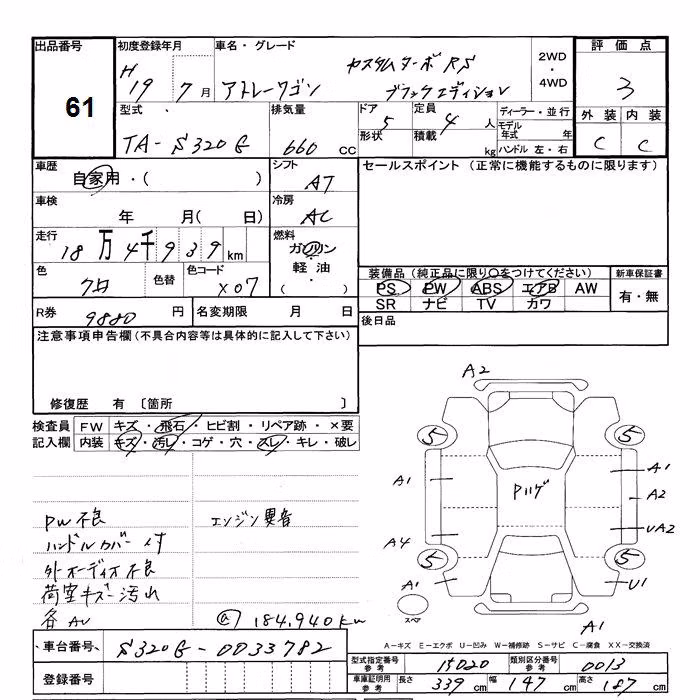 出品番号 初度登録年月 車名・グレード 評価点
61
H19 7月 アトレーワゴン カスタムターボRS ブラックエディション 2WD・4WD 3
型式 排気量 ドア 定員 ディーラー・並行 外装 内装
TA-S320G 660cc 5 4人 モデル年式 年 C C
形状 積載 kg ハンドル 左・右
車歴 シフト セールスポイント(正常に機能するものに限ります)
自家用・( ) AT
車検 冷房
年 月( 日) AC
走行 燃料
18万4千939km ガソリン
軽油・
( )
色 色替 色コード 装備品(純正品に限り○をつけてください) 新車保証書
クロ X07 PS PW ABS エアB AW 有・無
SR ナビ TV カワ
R券 9880円 名変期限 月 日 後日品
注意事項申告欄(不具合内容等は具体的に記入して下さい)
修復歴 有 〔箇所 〕
検査員 FW キズ・飛石・ヒビ割・リペア跡・×要
記入欄 内装 キズ・汚レ・コゲ・穴・スレ・キレ・破レ
PW不良 エンジン異音
ハンドルカバー付
外オーディオ不良
荷室キズ・汚れ
各AU
@184,940km
A2
5 5
A1 Pハゲ A1
A2
A4 UA2
5 5
A1 U1
スペア
A1
A-キズ E-エクボ U-凹み W-補修跡 S-サビ C-腐食 XX-交換済
車台番号 S320G-0033782
型式指定番号 参考 15020 類別区分番号 参考 0013
登録番号
車庫証明用 参考 長さ 339cm 幅 147cm 高さ 187cm